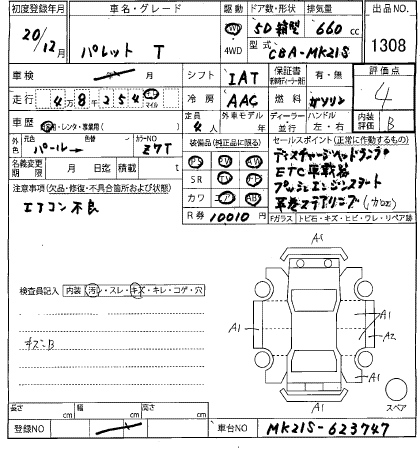 初度登録年月 車名・グレード 駆動 ドア数・形状 排気量 出品NO
20/12月 パレット T 2WD 4WD 5D 箱型 660 cc
型式 CBA-MK21S 1308
車検 年 月 シフト IAT 保証書 新車時ディーラー発行 有・無 評価点
走行 4万8千254 キロ マイル 冷房 AAC 燃料 ガソリン 4
車歴 自家用・レンタ・事業用( ) 定員 4人 外車モデル 年 ディーラー 並行 ハンドル 左・右 内装評価 B
外色 元色 パール 色替 カラーNO Z7T 装備品(純正品に限る) セールスポイント(正常に作動するもの)
名義変更期限 月 日迄 積載 t PS PW ディスチャージヘッドランプ
注意事項(欠品・修復・不具合箇所および状態) SR TV ナビ ETC車載器
エアコン不良 カワ エアB AB プッシュエンジンスタート
R券 10010 円 革巻ステアリング
Fガラス トビ石・キズ・ヒビ・ワレ・リペア跡
検査員記入 内装 汚・スレ・キズ・キレ・コゲ・穴
キズ=B
A1
A1
A1
A2
A1
A1
スペア
長さ cm 幅 cm 高さ cm
登録NO 車台NO MK21S-623747